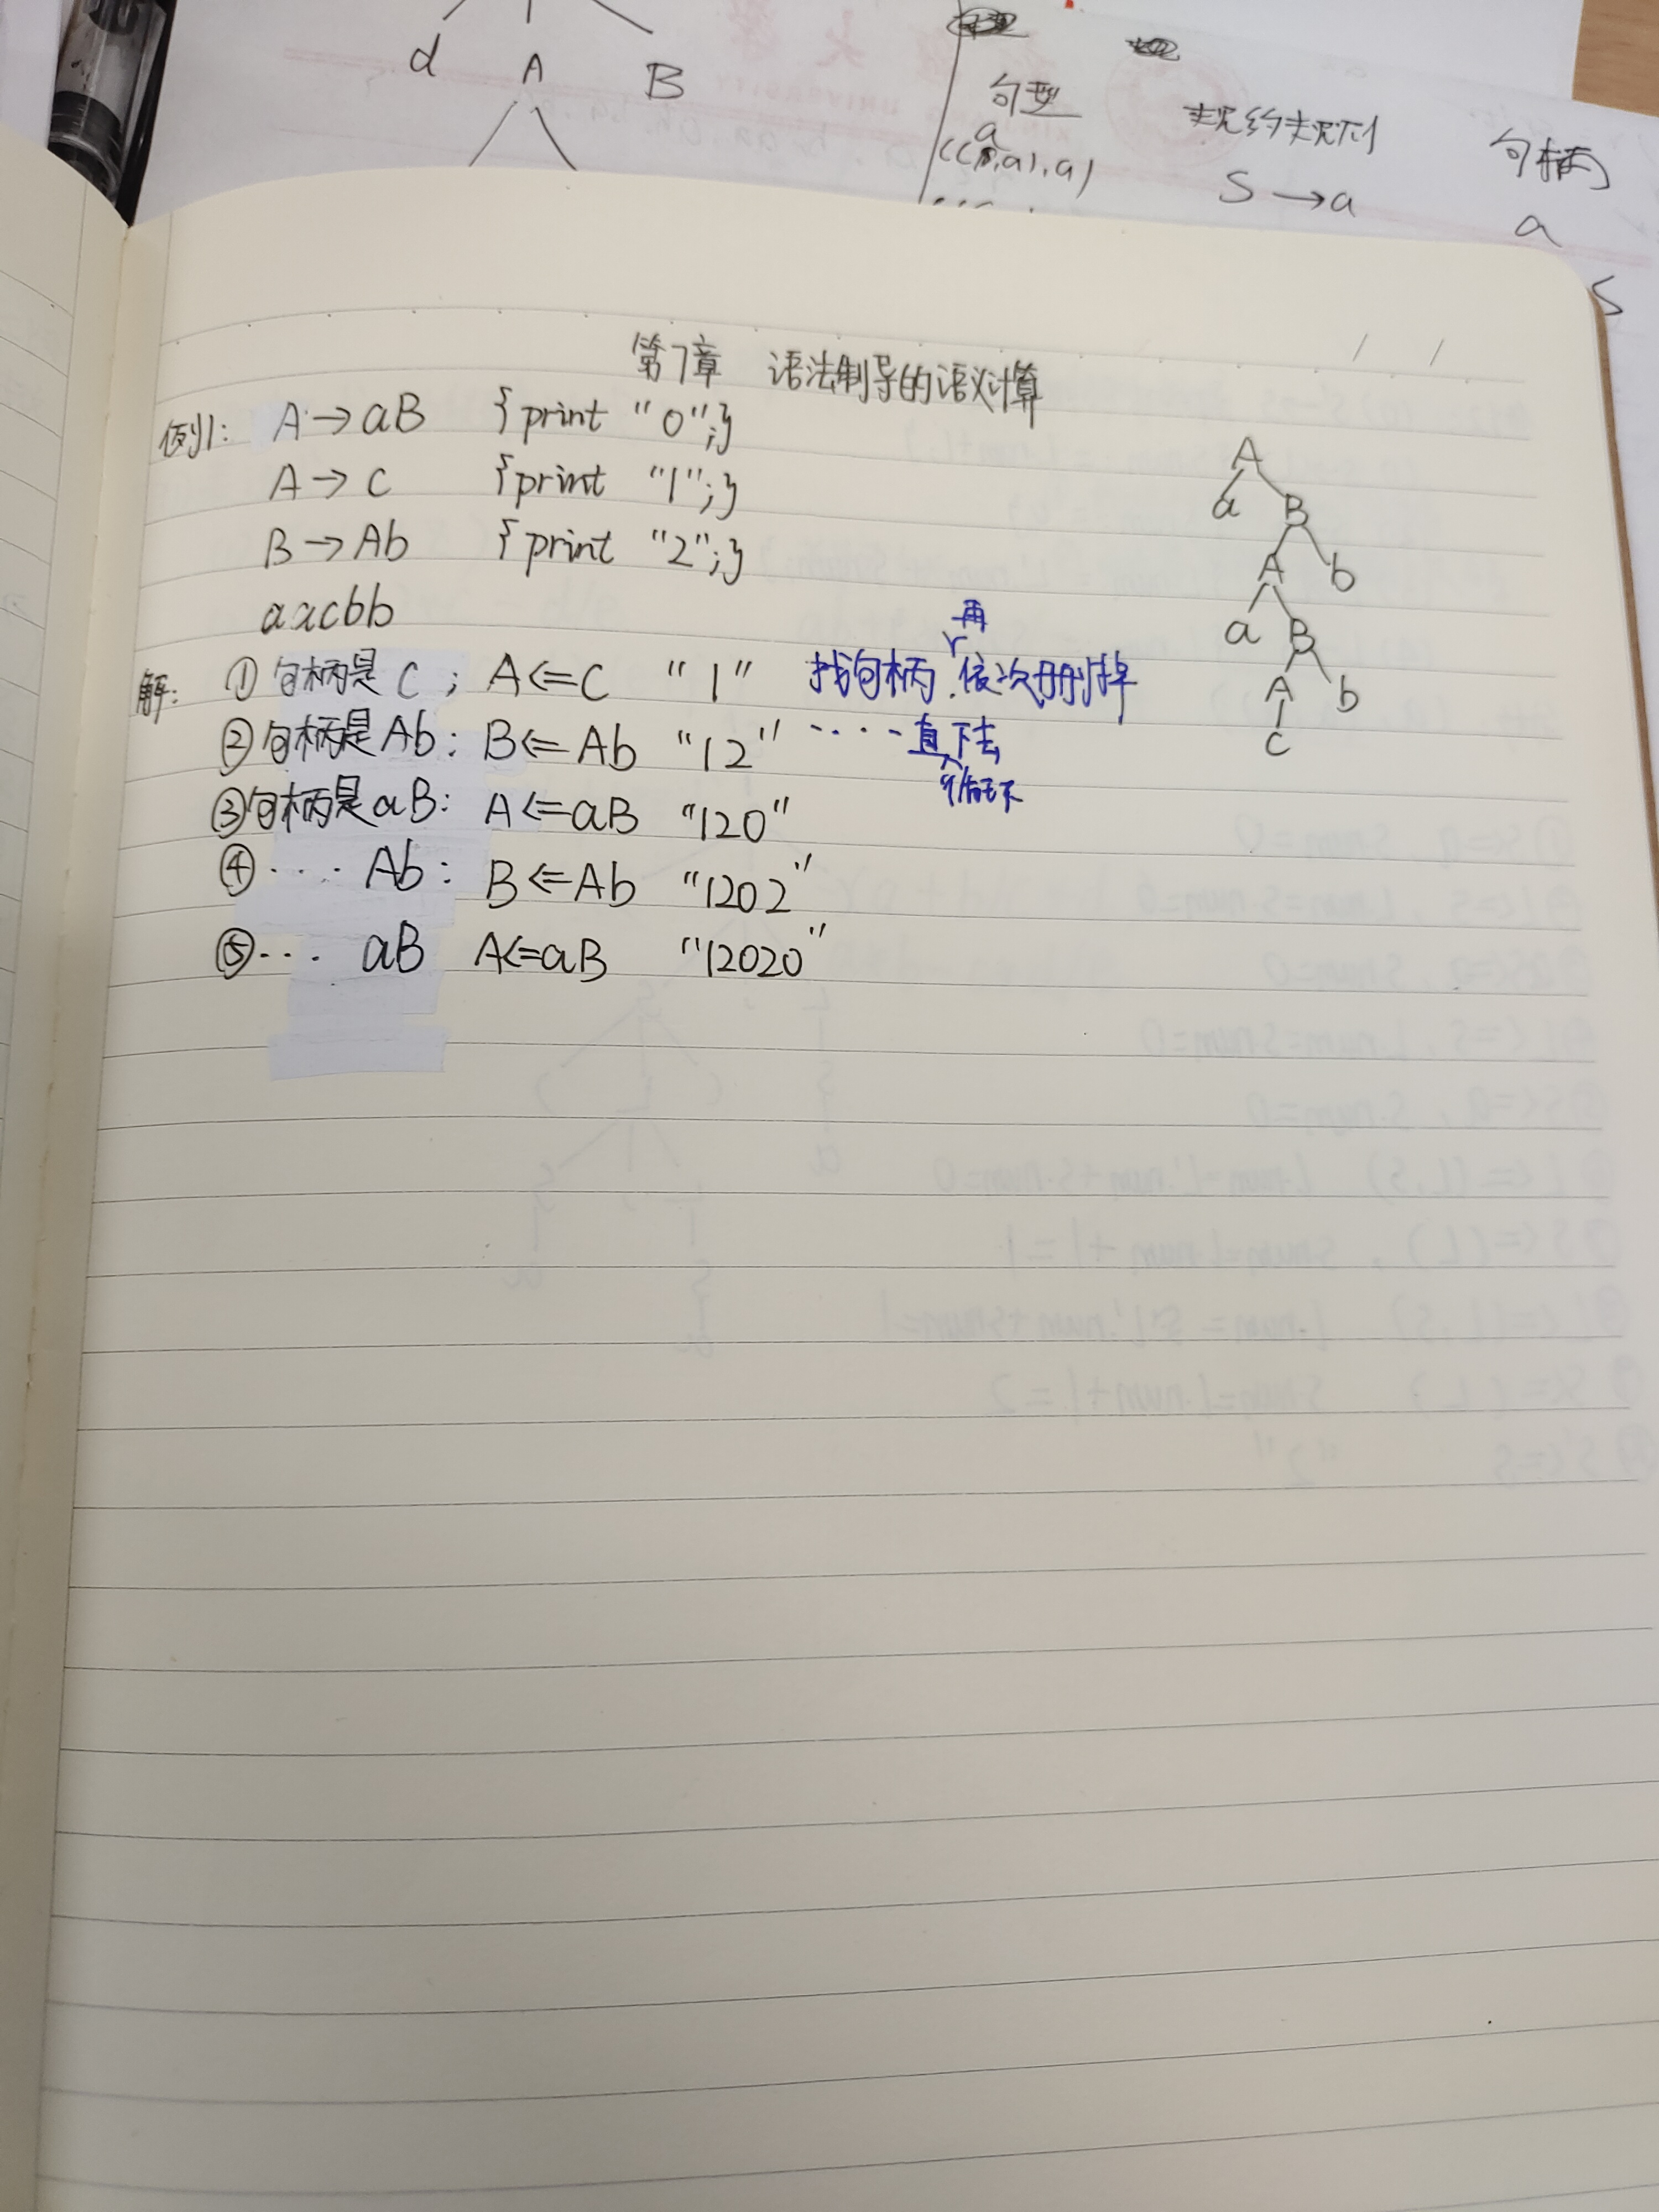 d A B
句型 规约规则 句柄
a
((S,a),a) S→a a
S
第7章 语法制导的语义计算
例1: A→aB {print "0";}
A→c {print "1";}
B→Ab {print "2";}
aacbb
解: ①句柄是c; A<=c "1" 找句柄,再依次删掉
②句柄是Ab: B<=Ab "12" ····一直下去
③句柄是aB: A<=aB "120"
④···· Ab: B<=Ab "1202"
⑤··· aB A<=aB "12020"
A
a B
A b
a B
A b
c